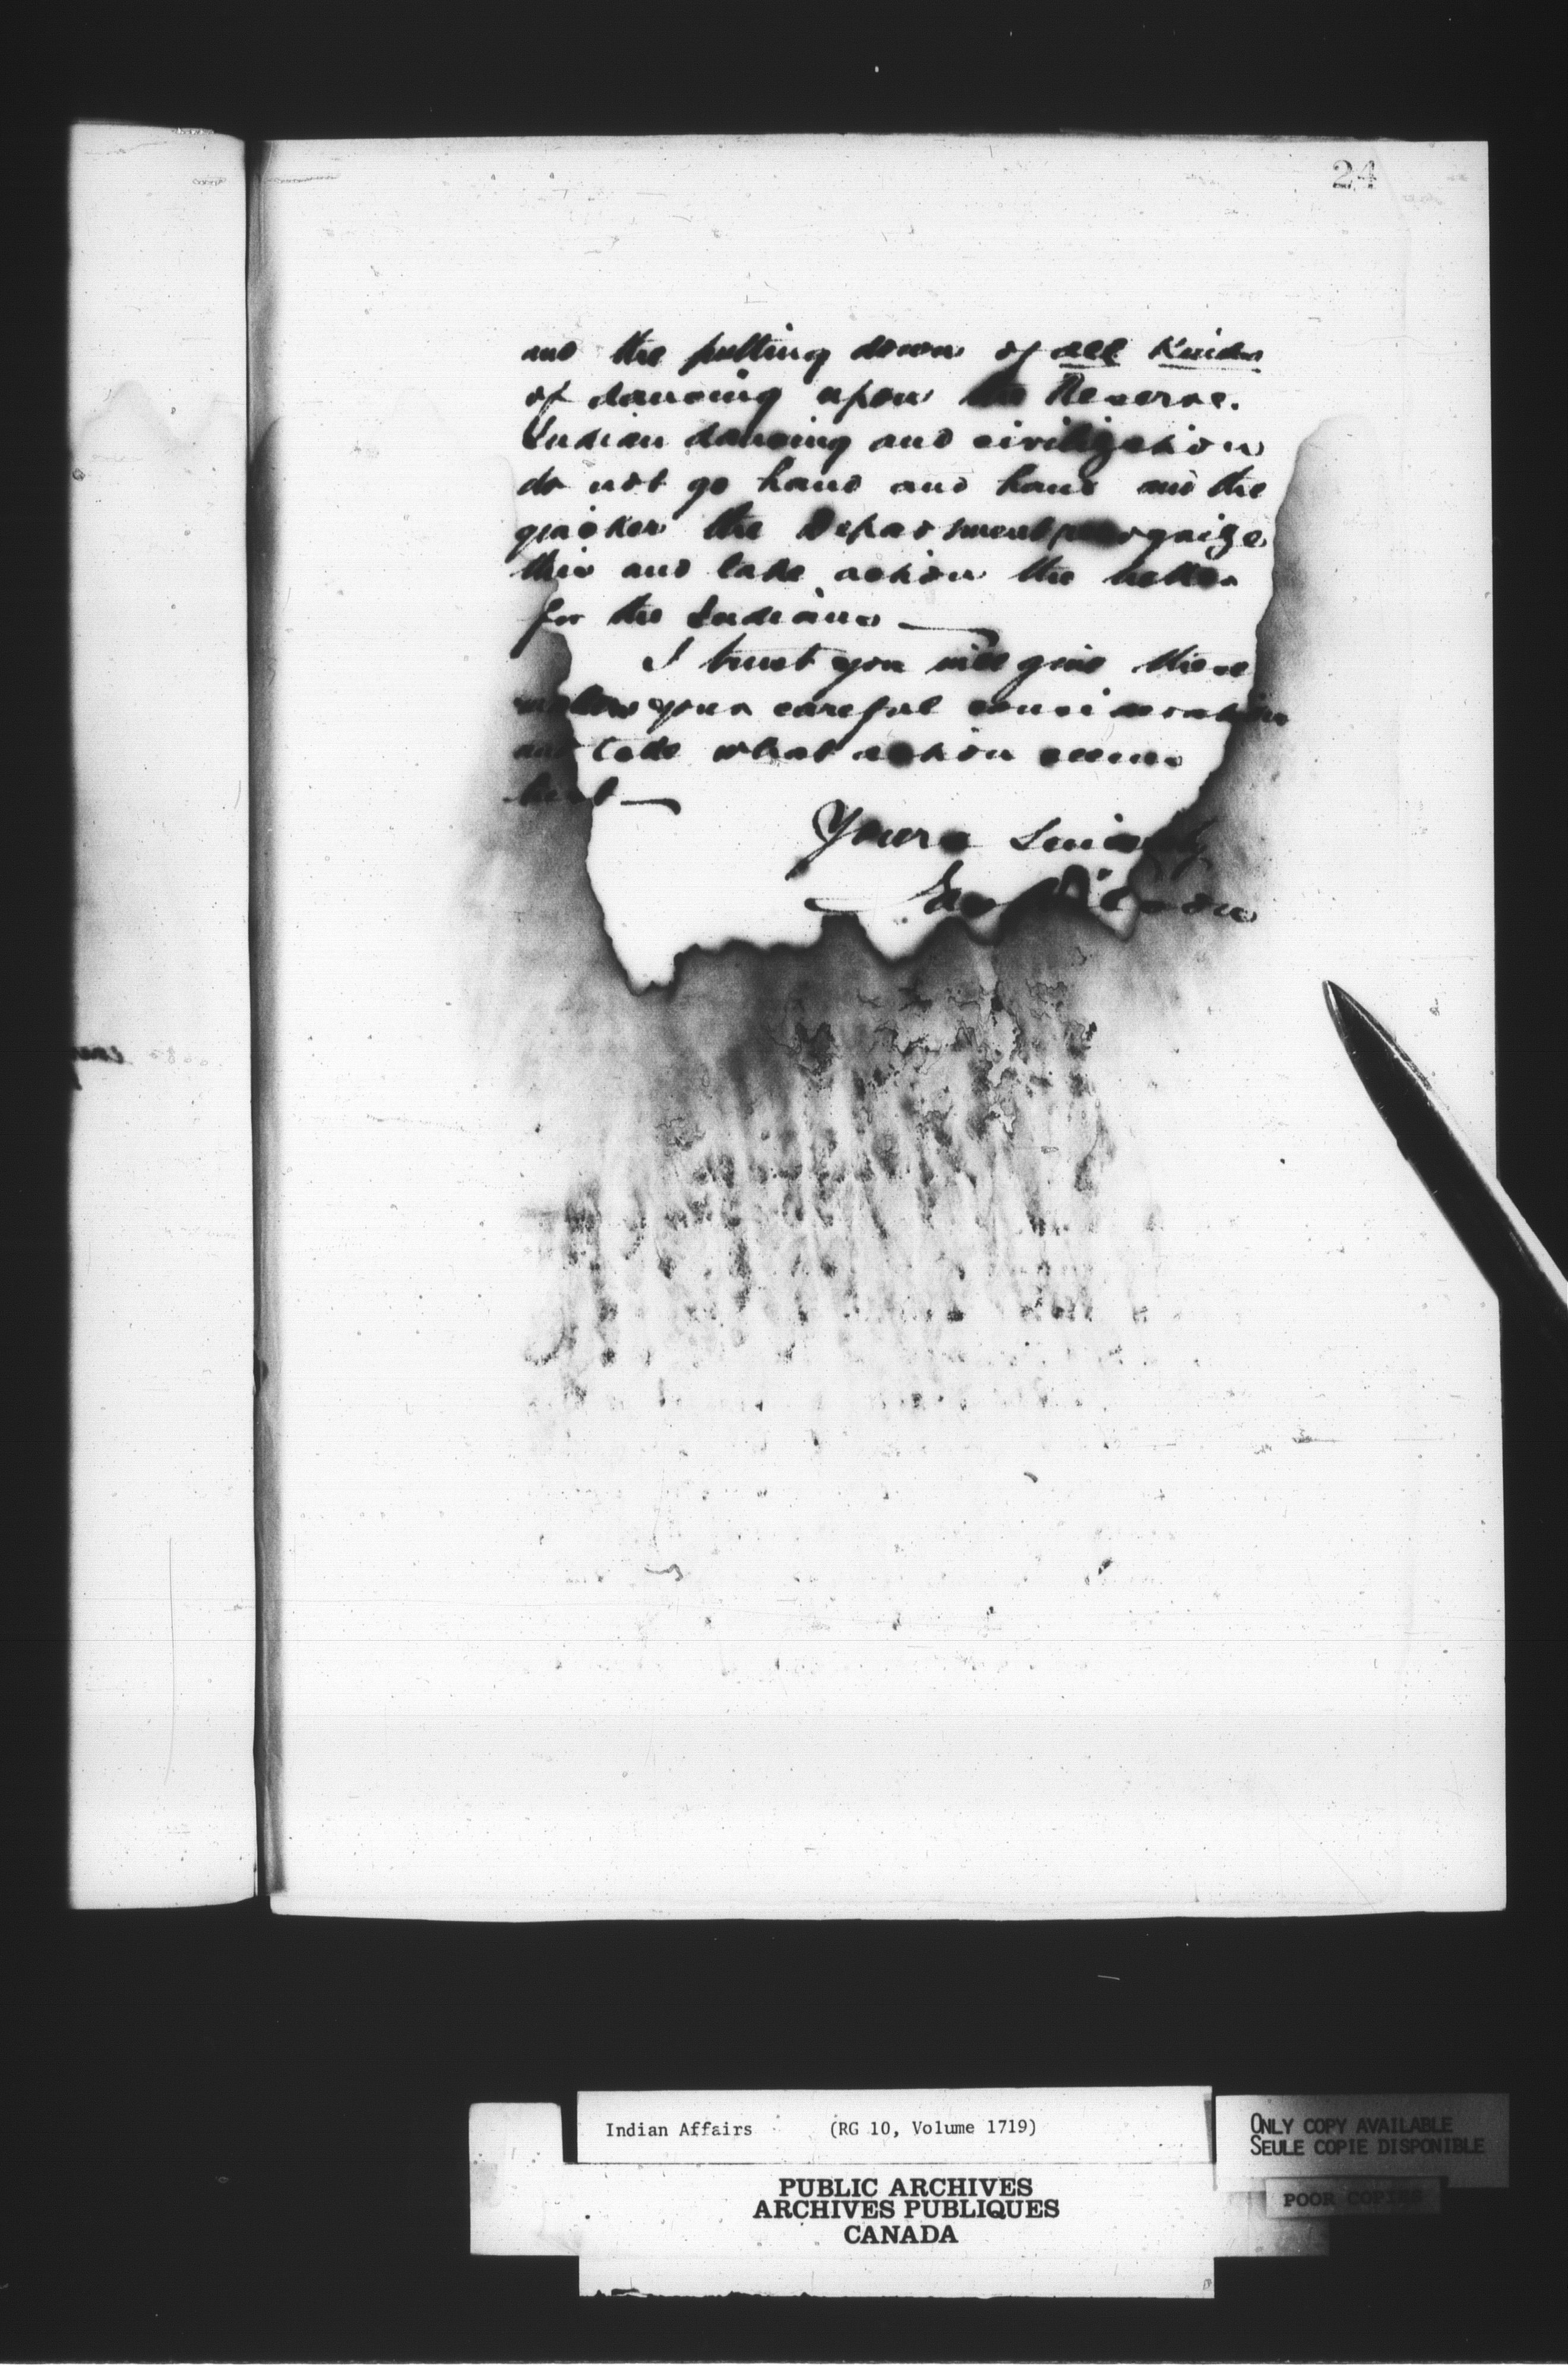 24
and the putting down of all Kinds
of dancing upon the Reserve.
Indian dancing and civilization
do not go hand and hand and the
quicker the Department recognize
this and take action the better
for the Indians —
I trust you will give these
matters your careful consideration
and take what action seems
best —
Yours Sincerely
Indian Affairs (RG 10, Volume 1719)
PUBLIC ARCHIVES
ARCHIVES PUBLIQUES
CANADA
ONLY COPY AVAILABLE
SEULE COPIE DISPONIBLE
POOR COPIES